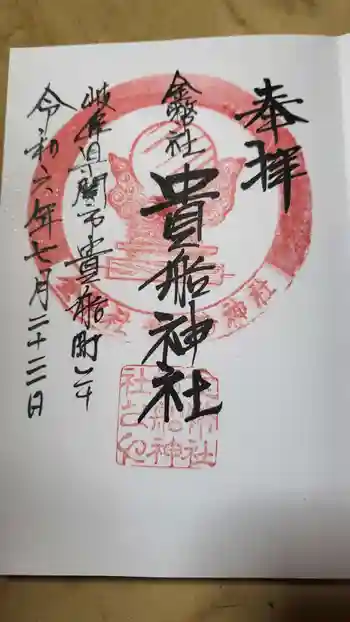 奉拝
金幣社
貴船神社
岐阜県関市貴船町二十
令和六年七月二十二日
神社